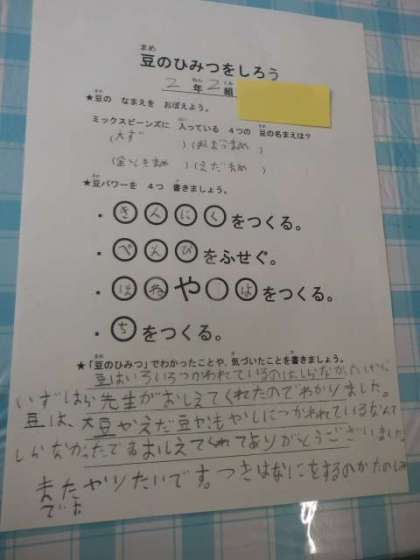 まめ
豆のひみつをしろう
2年2組
★豆の なまえを おぼえよう。
ミックスビーンズに 入っている 4つの 豆の名まえは?
(大ず)
(えだまめ)
★豆パワーを 4つ 書きましょう。
・きんにくをつくる。
・べんぴをふせぐ。
・ほねや はをつくる。
・ちをつくる。
★「豆のひみつ」でわかったことや、気づいたことを書きましょう。
豆はいろいろつかわれているのはしらなかったけど
いずはら先生がおしえてくれたのでわかりました。
豆は、大豆やえだ豆やもやしにつかわれているなんて
しらなかったですおしえてくれてありがとうございました
またやりたいです。つぎはなにをするのかたのしみ
です